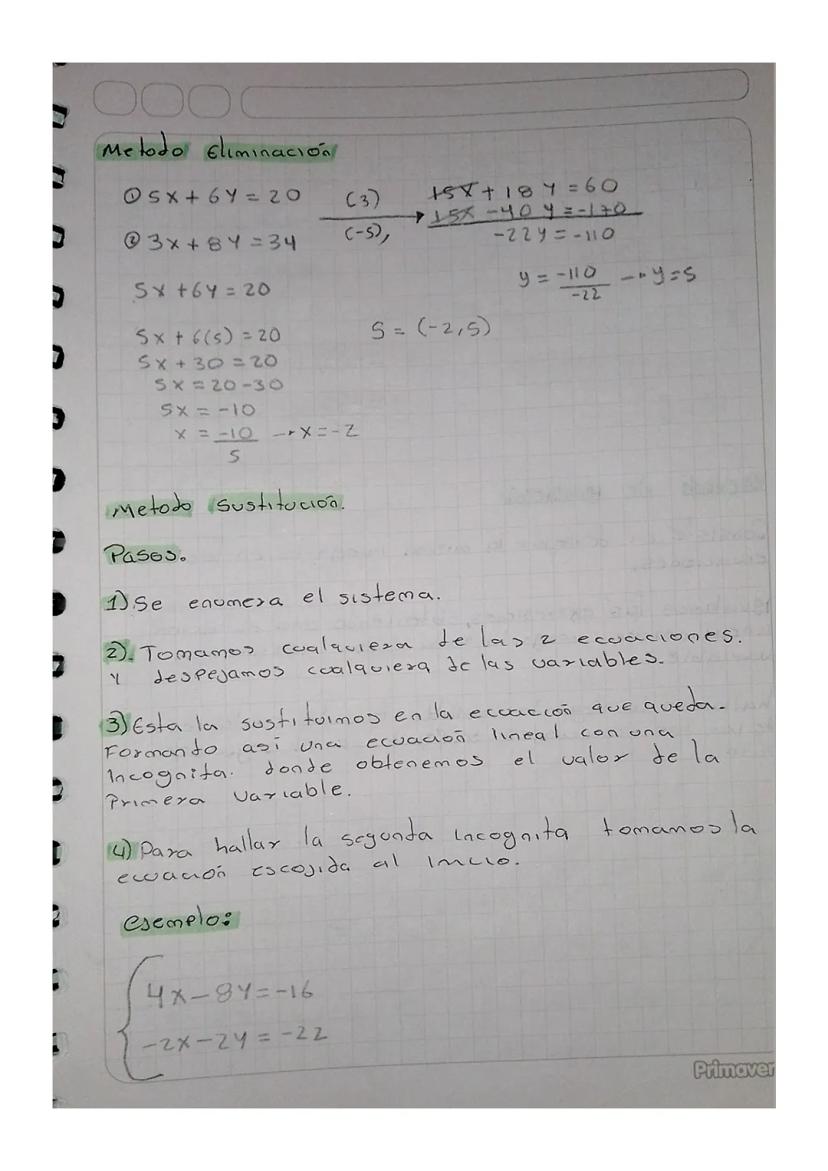 Metodo Eliminación
① 5x + 6y = 20 (3) 15x + 18y = 60
15x - 40y = -170
② 3x + 8y = 34 (-5), -22y = -110
5x + 6y = 20 y = -110/-22 → y = 5
5x + 6(5) = 20 S = (-2,5)
5x + 30 = 20
5x = 20 - 30
5x = -10
x = -10/5 → x = -2
Metodo Sustitución.
Pasos.
1) Se enumera el sistema.
2). Tomamos cualquiera de las 2 ecuaciones.
Y despejamos cualquiera de las variables.
3) Esta la sustituimos en la ecuación que queda.
Formando así una ecuación lineal con una
Incognita. donde obtenemos el valor de la
Primera variable.
4) Para hallar la segunda incognita tomamos la
ecuación Escojida al Inicio.
esemplo:
4x - 8y = -16
-2x - 2y = -22
Primaver